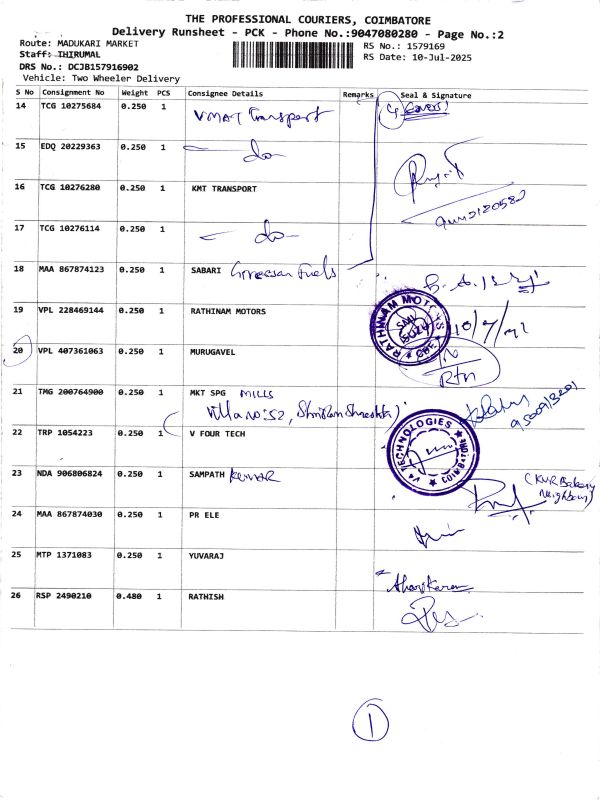 THE PROFESSIONAL COURIERS, COIMBATORE
Delivery Runsheet - PCK - Phone No.:9047080280 - Page No.:2
Route: MADUKARI MARKET RS No.: 1579169
Staff: THIRUMAL RS Date: 10-Jul-2025
DRS No.: DCJB157916902
Vehicle: Two Wheeler Delivery
S No Consignment No Weight PCS Consignee Details Remarks Seal & Signature
14 TCG 10275684 0.250 1 VMAT Transport 4 covers
15 EDQ 20229363 0.250 1 — do —
16 TCG 10276280 0.250 1 KMT TRANSPORT
17 TCG 10276114 0.250 1 — do —
18 MAA 867874123 0.250 1 SABARI Greesan Fuels
19 VPL 228469144 0.250 1 RATHINAM MOTORS RATHINAM MOTORS CBE
20 VPL 407361063 0.250 1 MURUGAVEL Rtn
21 TMG 200764900 0.250 1 MKT SPG MILLS
Villa no: 52,
22 TRP 1054223 0.250 1 V FOUR TECH V4 TECHNOLOGIES COIMBATORE
23 NDA 906806824 0.250 1 SAMPATH KUMAR (KVR Bakery Neighbour)
24 MAA 867874030 0.250 1 PR ELE
25 MTP 1371083 0.250 1 YUVARAJ
26 RSP 2490210 0.480 1 RATHISH
1